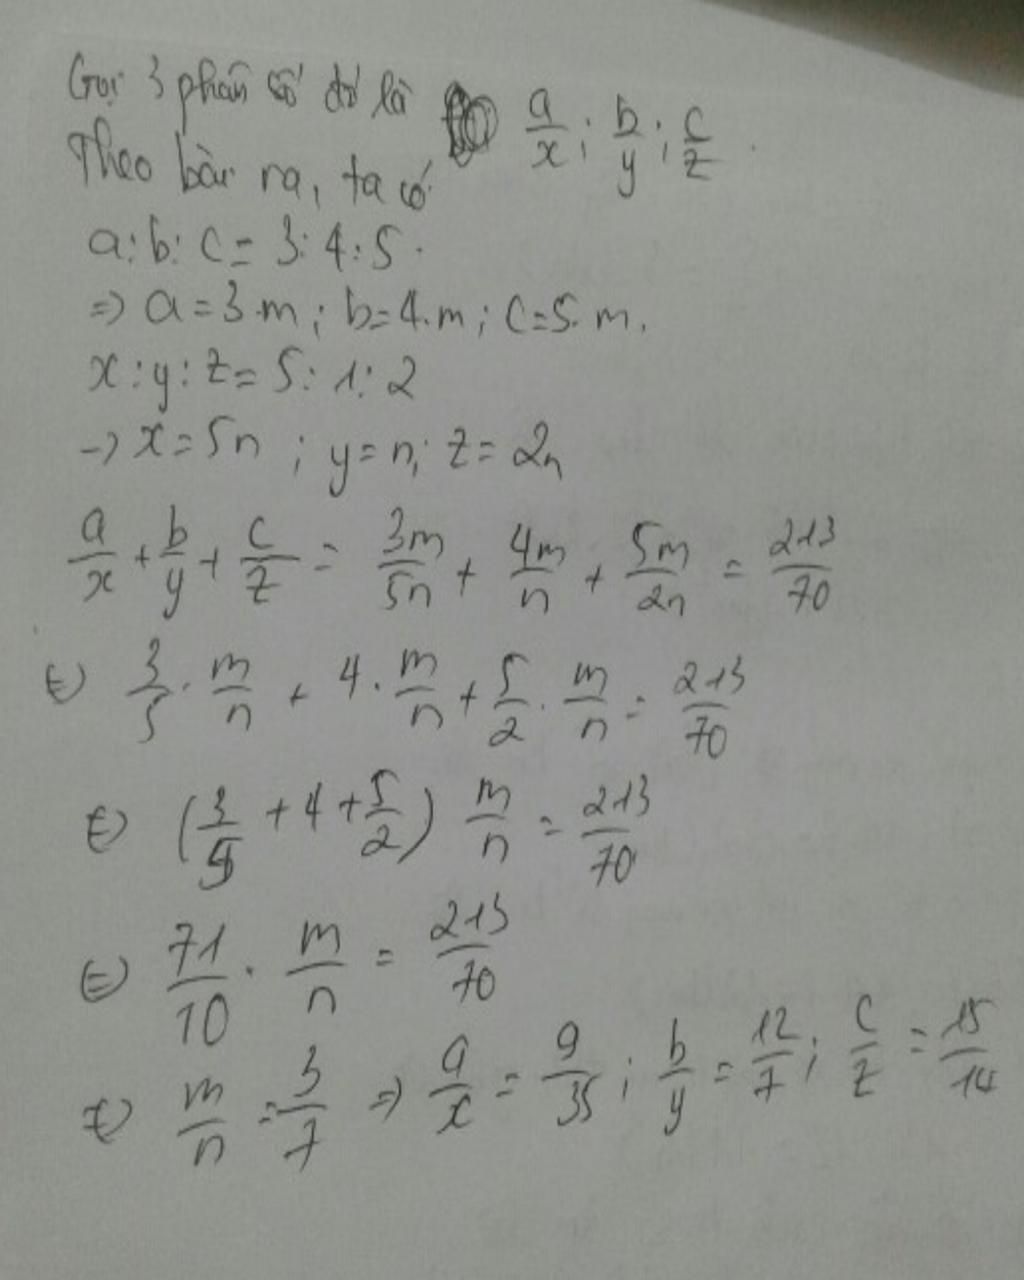 Gọi 3 phân số đó là a/x ; b/y ; c/z .
Theo bài ra, ta có
a : b : c = 3 : 4 : 5 .
=> a = 3.m ; b = 4.m ; c = 5.m .
x : y : z = 5 : 1 : 2
-> x = 5n ; y = n ; z = 2n
a/x + b/y + c/z = 3m/5n + 4m/n + 5m/2n = 213/70
<=> 3/5 . m/n + 4 . m/n + 5/2 . m/n = 213/70
<=> (3/5 + 4 + 5/2) m/n = 213/70
<=> 71/10 . m/n = 213/70
<=> m/n = 3/7 => a/x = 9/35 ; b/y = 12/7 ; c/z = 15/14